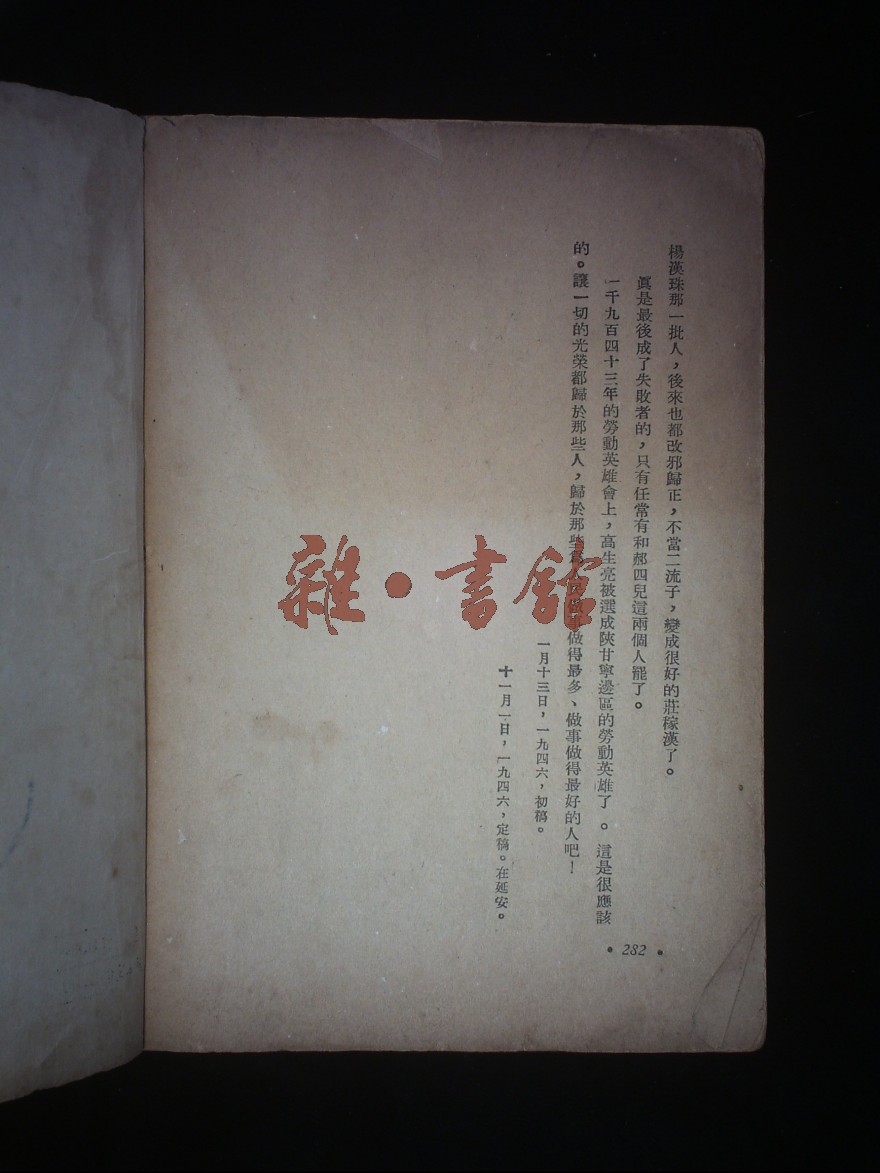 楊漢珠那一批人，後來也都改邪歸正，不當二流子，變成很好的莊稼漢了。
眞是最後成了失敗者的，只有任常有和郝四兒這兩個人罷了。
一千九百四十三年的勞動英雄會上，高生亮被選成陝甘寧邊區的勞動英雄了。這是很應該
的。讓一切的光榮都歸於那些人，歸於那些爲人民做事做得最多、做事做得最好的人吧！
一月十三日，一九四六，初稿。
十一月一日，一九四六，定稿。在延安。
• 282 •
雜•書館